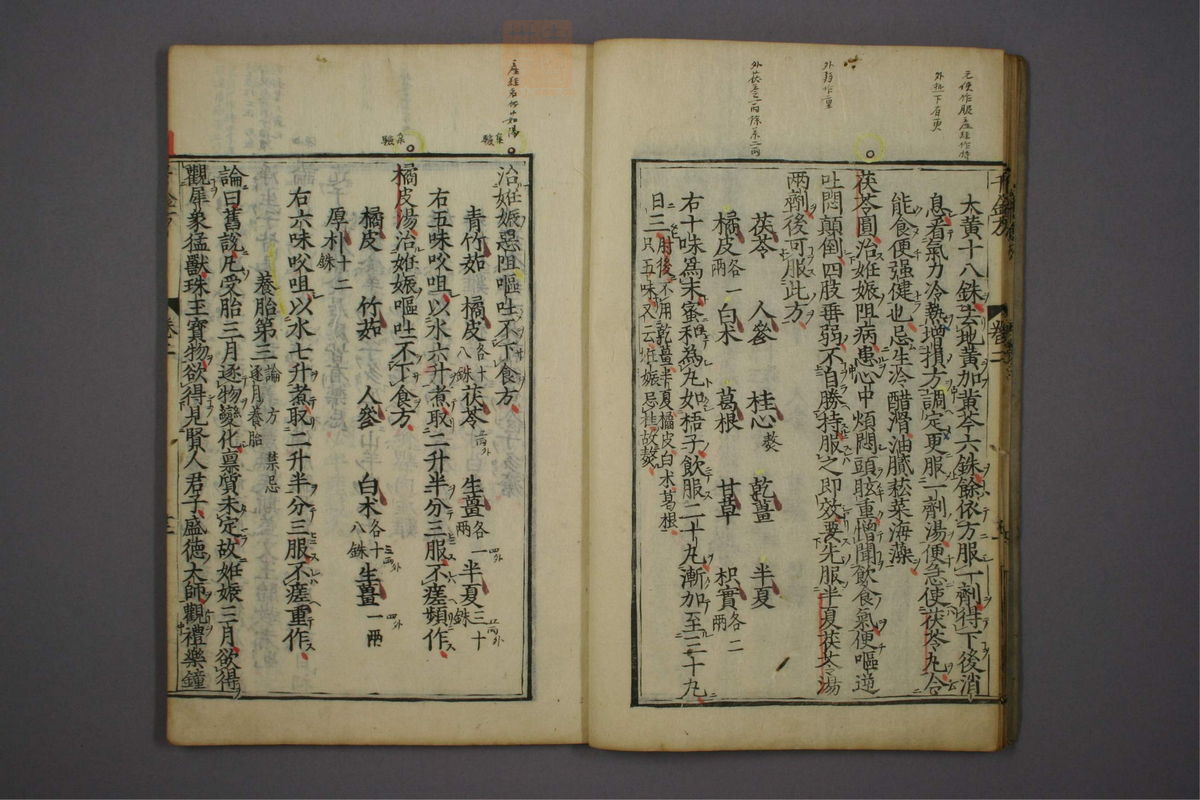 大黃十八銖去地黃加黃芩六銖餘依方服一劑得下後消
息看氣力冷熱增損方調定更服一劑湯便急使茯苓丸令
能食便强健也忌生冷醋滑油膩菘菜海藻
茯苓圓治妊娠阻病患心中煩悶頭眩重憎聞飲食氣便嘔逆
吐悶顛倒四肢垂弱不自勝持服之即效要先服半夏茯苓湯
兩劑後可服此方
茯苓 人參 桂心熬 乾薑 半夏
橘皮各一兩 白朮 葛根 甘草 枳實各二兩
右十味為末蜜和為丸如梧子飲服二十丸漸加至三十丸
日三肘後不用乾薑半夏橘皮白朮葛根只五味又云妊娠忌桂故熬
治妊娠惡阻嘔吐不下食方
青竹茹 橘皮各十八銖 茯苓 生薑各一兩 半夏三十銖
右五味㕮咀以水六升煮取二升半分三服不瘥頻作
橘皮湯治妊娠嘔吐不下食方
橘皮 竹茹 人參 白朮各十八銖 生薑一兩
厚朴十二銖
右六味㕮咀以水七升煮取二升半分三服不瘥重作
養胎第三論 方 禁忌 逐月養胎
論曰舊說凡受胎三月逐物變化稟質未定故妊娠三月欲得
觀犀象猛獸珠玉寶物欲得見賢人君子盛德大師觀禮樂鐘